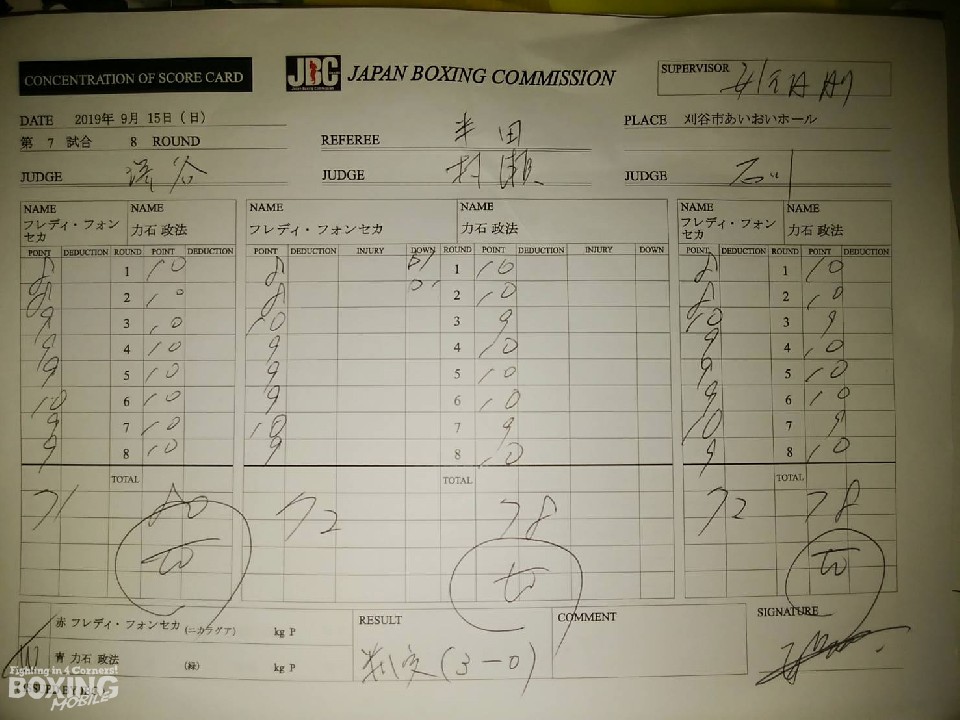 CONCENTRATION OF SCORE CARD
JBC JAPAN BOXING COMMISSION
SUPERVISOR
DATE 2019年 9月 15日(日)
PLACE 刈谷市あいおいホール
第 7 試合 8 ROUND
REFEREE 半田
JUDGE JUDGE 村瀬 JUDGE 石川
NAME NAME NAME NAME NAME NAME
フレディ・フォンセカ 力石 政法 フレディ・フォンセカ 力石 政法 フレディ・フォンセカ 力石 政法
POINT DEDUCTION ROUND POINT DEDUCTION POINT DEDUCTION INJURY DOWN ROUND POINT DEDUCTION INJURY DOWN POINT DEDUCTION ROUND POINT DEDUCTION
8 1 10 8 1 10 8 1 10
8 2 10 8 2 10 8 2 10
9 3 10 10 3 9 10 3 9
9 4 10 9 4 10 9 4 10
9 5 10 9 5 10 9 5 10
10 6 10 9 6 10 9 6 10
9 7 10 10 7 9 10 7 9
9 8 10 9 8 10 9 8 10
TOTAL TOTAL TOTAL
71 80 72 78 72 78
赤 フレディ・フォンセカ (ニカラグア) kg P
RESULT
COMMENT
SIGNATURE
青 力石 政法 (緑) kg P
判定 (3-0)
Fighting in 4 Corners!
BOXING
MOBILE